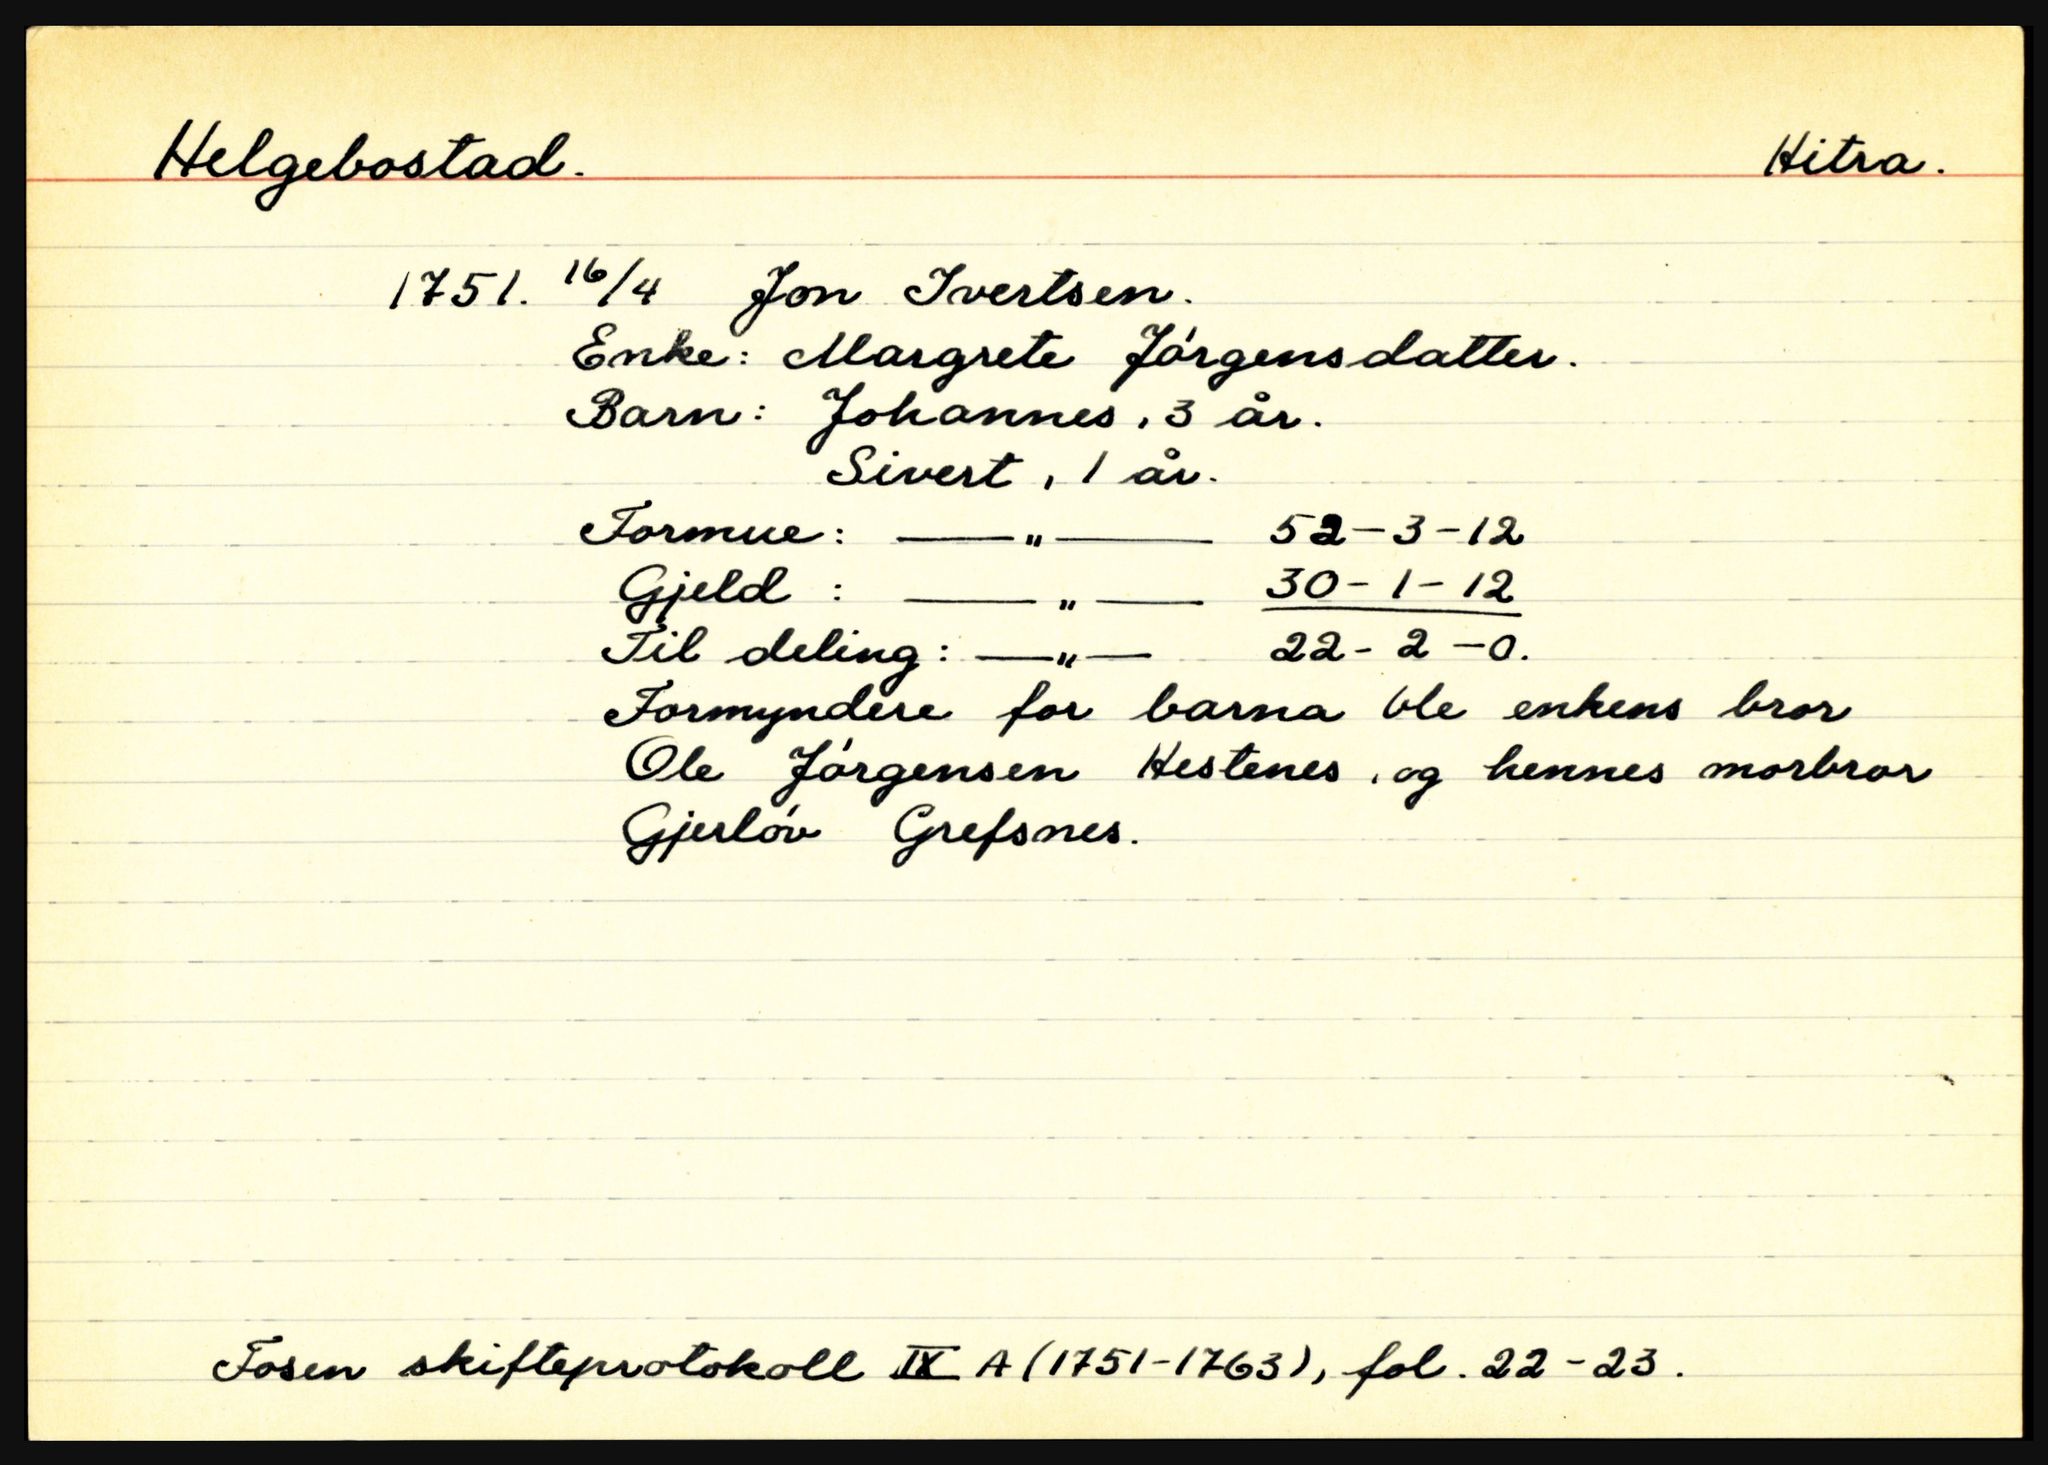 Helgebostad. Hitra.
1751. 16/4 Jon Ivertsen.
Enke: Margrete Jörgensdatter.
Barn: Johannes, 3 år.
Sivert, 1 år.
Formue: —„— 52-3-12
Gjeld : —„— 30-1-12
Til deling: —„— 22-2-0.
Formyndere for barna ble enkens bror
Ole Jörgensen Hestenes, og hennes morbror
Gjerlöv Grefsnes.
Fosen skifteprotokoll IX A (1751-1763), fol. 22-23.